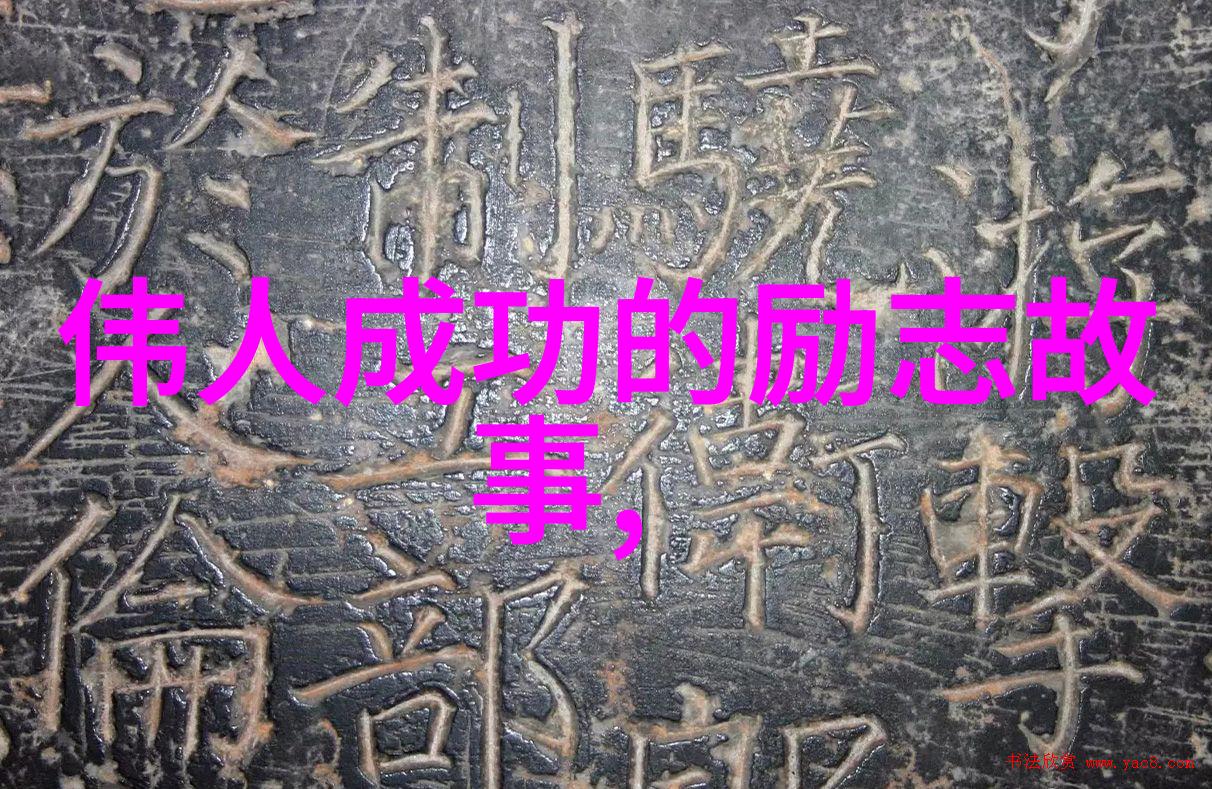 伟人成功的励志故
事,
擊
驍衛
制六部
於人倫
书法欣赏 www.yac8.com